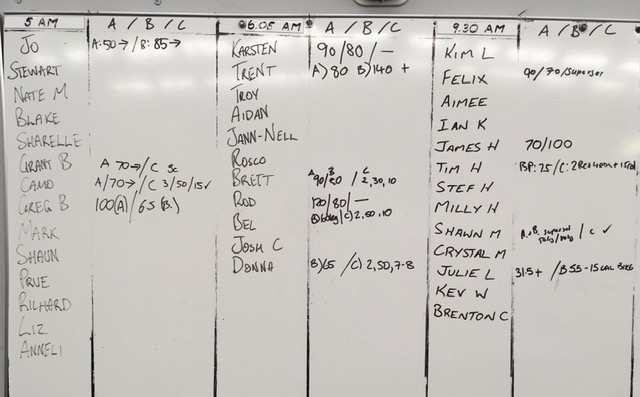 5 AM A / B / C
JO A:50→ / B: 85→
STEWART
NATE M
BLAKE
SHARELLE
GRANT B A 70→ / C
CAMO A/70→ / C 3/50/15✓
GREG B 100(A) / 65 (B.)
MARK
SHAUN
PRUE
RICHARD
LIZ
ANNELI
6.05 AM A / B / C
KARSTEN 90/80/—
TRENT A) 80 B) 140 +
TROY
AIDAN
JANN-NELL
ROSCO
BRETT A 90/ B / C 2,30,10
ROD 120/80/—
BEL B) 60kg / C) 2,50,10
JOSH C
DONNA B) 65 / C) 2,50,7-8
9.30 AM A / B / C
KIM L
FELIX 90/70/Superset
AIMEE
IAN K
JAMES H 70/100
TIM H BP: 75 / C: 2
STEF H
MILLY H
SHAWN M A+B superset / C ✓
CRYSTAL M
JULIE L 31.5+ / B 55 - 15 CAL
KEV W
BRENTON C